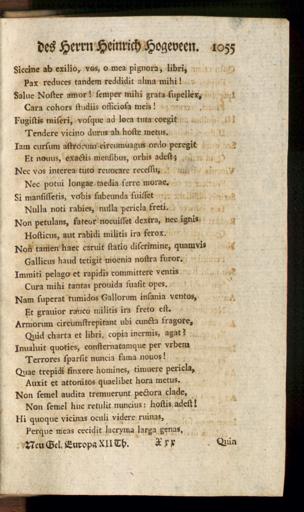 des Herrn Heinrich Hogeveen. 1055
Siccine ab exilio, vos, o mea pignora, libri,
Pax reduces tandem reddidit alma mihi!
Salue Noster amor! semper mihi grata supellex,
Cara cohors studiis officiosa meis!
Fugistis miseri, vosque ad loca tuta coegit
Tendere vicino durus ab hoste metus.
Iam cursum astrorum circumuagus ordo peregit
Et nouus, exactis mensibus, orbis adest;
Nec vos interea tuto reuocare recessu,
Nec potui longae taedia ferre morae.
Si mansissetis, vobis subeunda fuisset
Nulla noti rabies, nulla pericla freti.
Non petulans, fateor nocuisset dextra, nec ignis
Hosticus, aut rabidi militis ira ferox.
Non tamen haec caruit statio discrimine, quamvis
Gallicus haud tetigit moenia nostra furor.
Immiti pelago et rapidis committere ventis
Cura mihi tantas prouida suasit opes.
Nam superat tumidos Gallorum insania ventos,
Et grauior rauco militis ira freto est.
Armorum circumstrepitant ubi cuncta fragore,
Quid charta et libri, copia inermis, agat?
Inualuit quoties, consternatamque per vrbem
Terrores sparsit nuncia fama nouos!
Quae trepidi finxere homines, timuere pericla,
Auxit et attonitos quaelibet hora metus.
Non semel audita tremuerunt pectora clade,
Non semel huc retulit nuncius: hostis adest!
Hi quoque vicinas oculi videre ruinas,
Perque meas cecidit lacryma larga genas,
Neu Gel. Europa XII Th. Xxx Quin